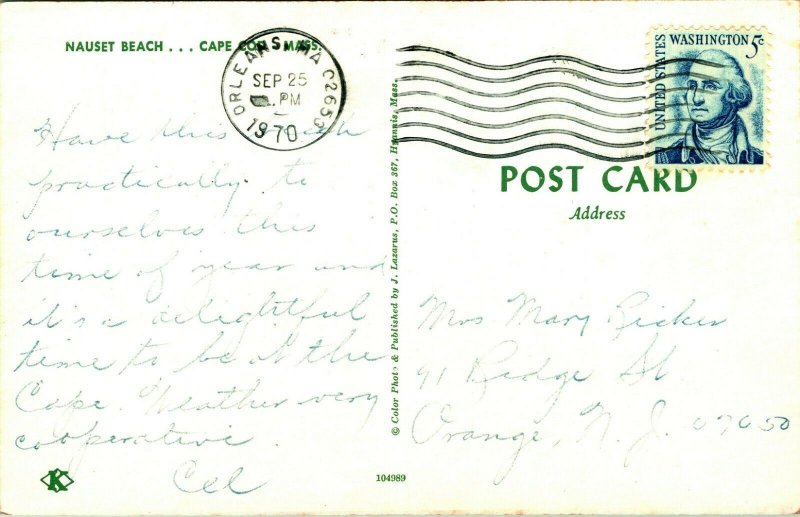 NAUSET BEACH . . . CAPE COD, MASS.
ORLEANS, MA 02653
SEP 25
PM
1970
UNITED STATES
WASHINGTON 5c
POST CARD
Address
Have this beach
practically to
ourselves this
time of year and
it's a delightful
time to be at the
Cape. Weather very
cooperative.
Cel
© Color Photo & Published by J. Lazarus, P.O. Box 367, Hyannis, Mass.
Mrs Mary Ricker
91 Ridge St
Orange, N. J. 07050
K
104989